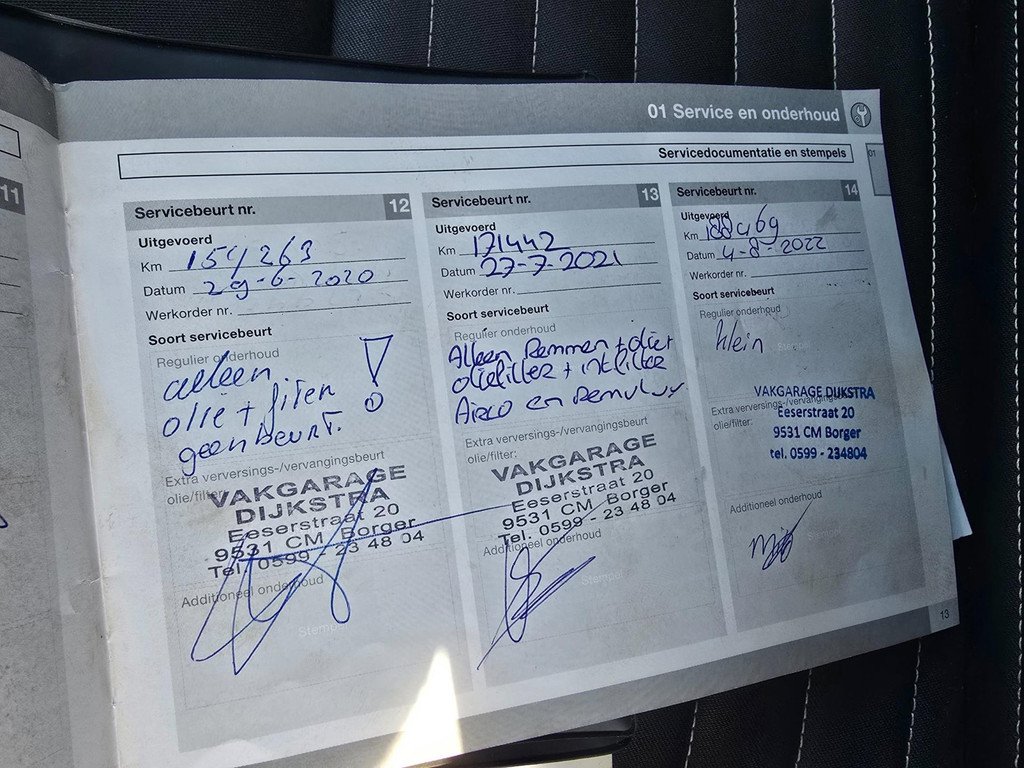 01 Service en onderhoud
Servicedocumentatie en stempels
01
11
Servicebeurt nr. 12
Uitgevoerd
Km 154263
Datum 29-6-2020
Werkorder nr.
Soort servicebeurt
Regulier onderhoud
alleen
olie + filten
geen beurt. !
Extra verversings-/vervangingsbeurt
olie/filter:
VAKGARAGE
DIJKSTRA
Eeserstraat 20
9531 CM Borger
Tel. 0599 - 23 48 04
Additioneel onderhoud
Stempel
Servicebeurt nr. 13
Uitgevoerd
Km 171442
Datum 27-7-2021
Werkorder nr.
Soort servicebeurt
Regulier onderhoud
Alleen Remmen + olie
oliefilter +
Airco en
Extra verversings-/vervangingsbeurt
olie/filter:
VAKGARAGE
DIJKSTRA
Eeserstraat 20
9531 CM Borger
Tel. 0599 - 23 48 04
Additioneel onderhoud
Stempel
Servicebeurt nr. 14
Uitgevoerd
Km
Datum 4-8-2022
Werkorder nr.
Soort servicebeurt
Regulier onderhoud
klein
Stempel
VAKGARAGE DIJKSTRA
Extra verversings-/vervangingsbeurt
olie/filter:
Eeserstraat 20
9531 CM Borger
tel. 0599 - 234804
Additioneel onderhoud
13